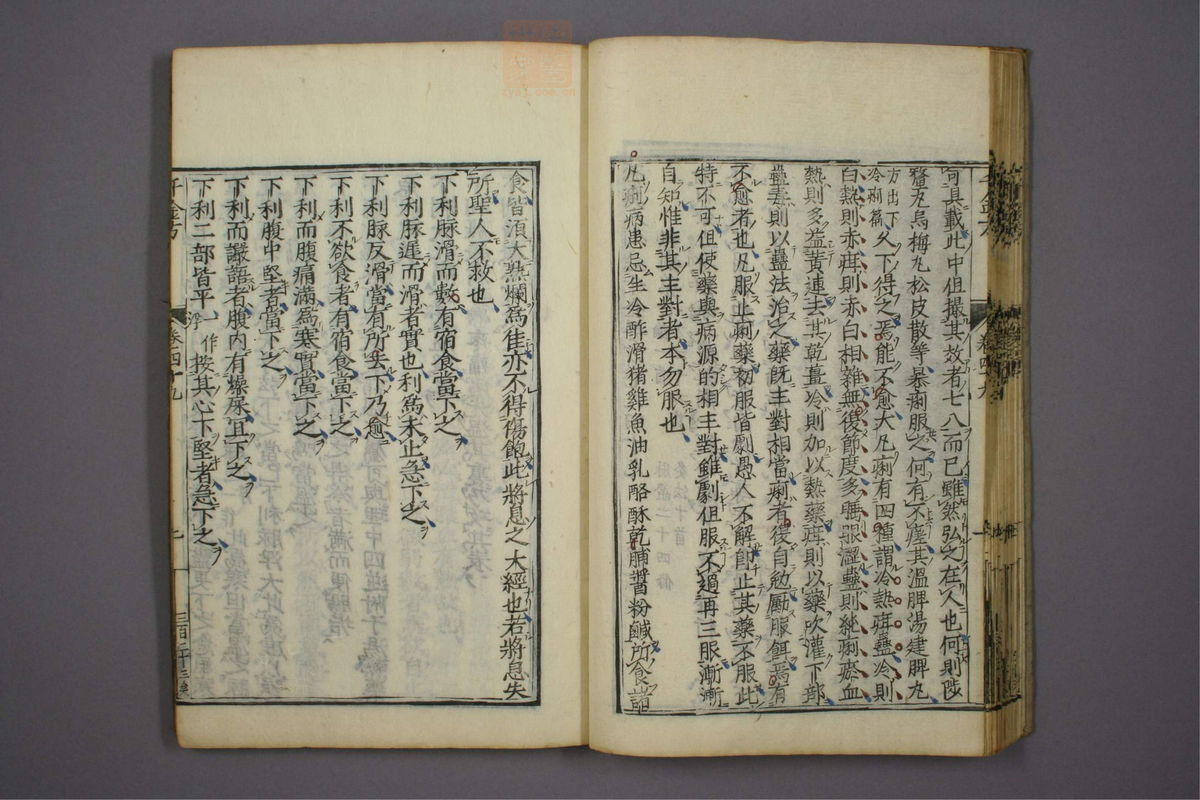 何具載此中但撮其效者七八而已雖然弘之在人也何則陟
釐丸烏梅丸松皮散等暴痢服之何有不瘥其溫脾湯建脾丸
方出下冷痢篇久下得之焉能不愈大凡痢有四種謂冷熱疳蠱冷則
白熱則赤疳則赤白相雜無復節度多睡眼澀蠱則純痢瘀血
熱則多益黃連去其乾薑冷則加以熱藥疳則以藥吹灌下部
蠱毒則以蠱法治之藥既主對相當痢者復自勉勵服餌焉有
不愈者也凡服止痢藥初服皆劇愚人不解即止其藥不服此
特不可但使藥與病源的相主對雖劇但服不過再三服漸漸
自知惟非其主對者本勿服也
凡痢病患忌生冷酢滑猪雞魚油乳酪酥乾脯醬粉鹹所食諸
食皆須大熟爛為佳亦不得傷飽此將息之大經也若將息失
所聖人不救也
下利脉滑而數有宿食當下之
下利脉遲而滑者實也利為未止急下之
下利脉反滑當有所去下乃愈
下利不欲食者有宿食當下之
下利而腹痛滿為寒實當下之
下利腹中堅者當下之
下利而讝語者腹內有燥屎宜下之
下利三部皆平一作浮按其心下堅者急下之
千金方
卷四十九
七